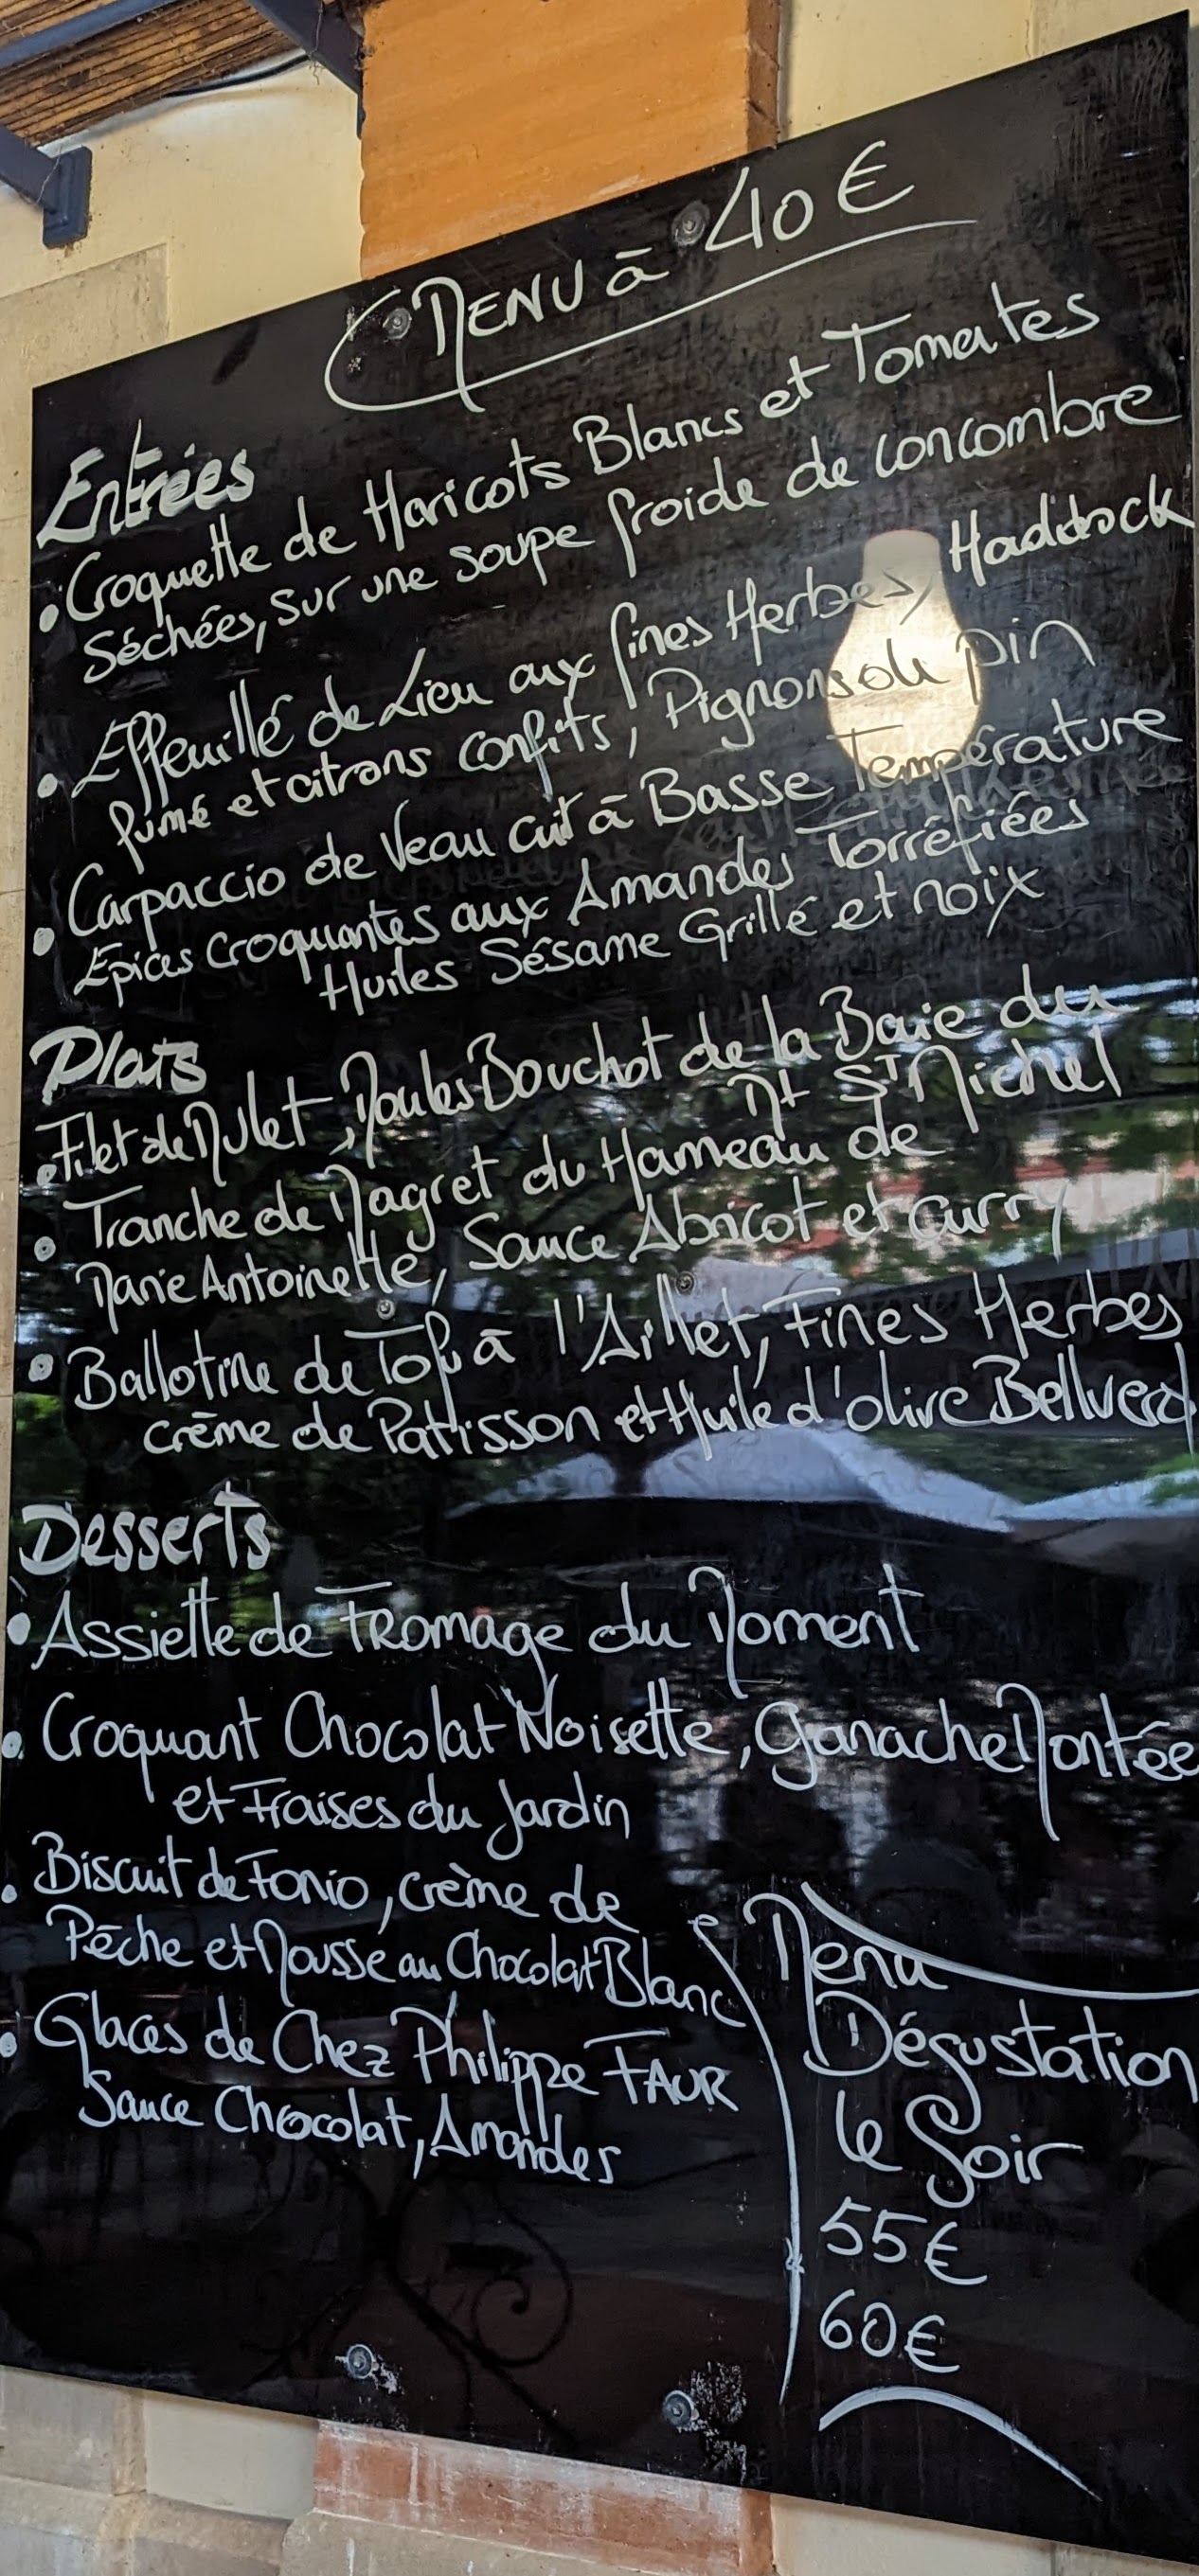 MENU à 40 €
Entrées
• Croquette de Haricots Blancs et Tomates
Séchées, sur une soupe froide de concombre
• Effeuillé de Lieu aux fines Herbes, Haddock
fumé et citrons confits, Pignons de pin
• Carpaccio de Veau cuit à Basse Température
Epices Croquantes aux Amandes Torréfiées
Huiles Sésame Grillé et noix
Plats
• Filet de Mulet, Moules Bouchot de la Baie du
Mt St Michel
• Tranche de Magret du Hameau de
Marie Antoinette, Sauce Abricot et curry
• Ballotine de Tofu à l'Aillet, Fines Herbes
crème de Patisson et Huile d'olive Bellverd
Desserts
• Assiette de Fromage du Moment
• Croquant Chocolat Noisette, Ganache Montée
et Fraises du Jardin
• Biscuit de Fonio, crème de
Pêche et Mousse au Chocolat Blanc
• Glaces de Chez Philippe FAUR
Sauce Chocolat, Amandes
Menu
Dégustation
le Soir
55€
60€